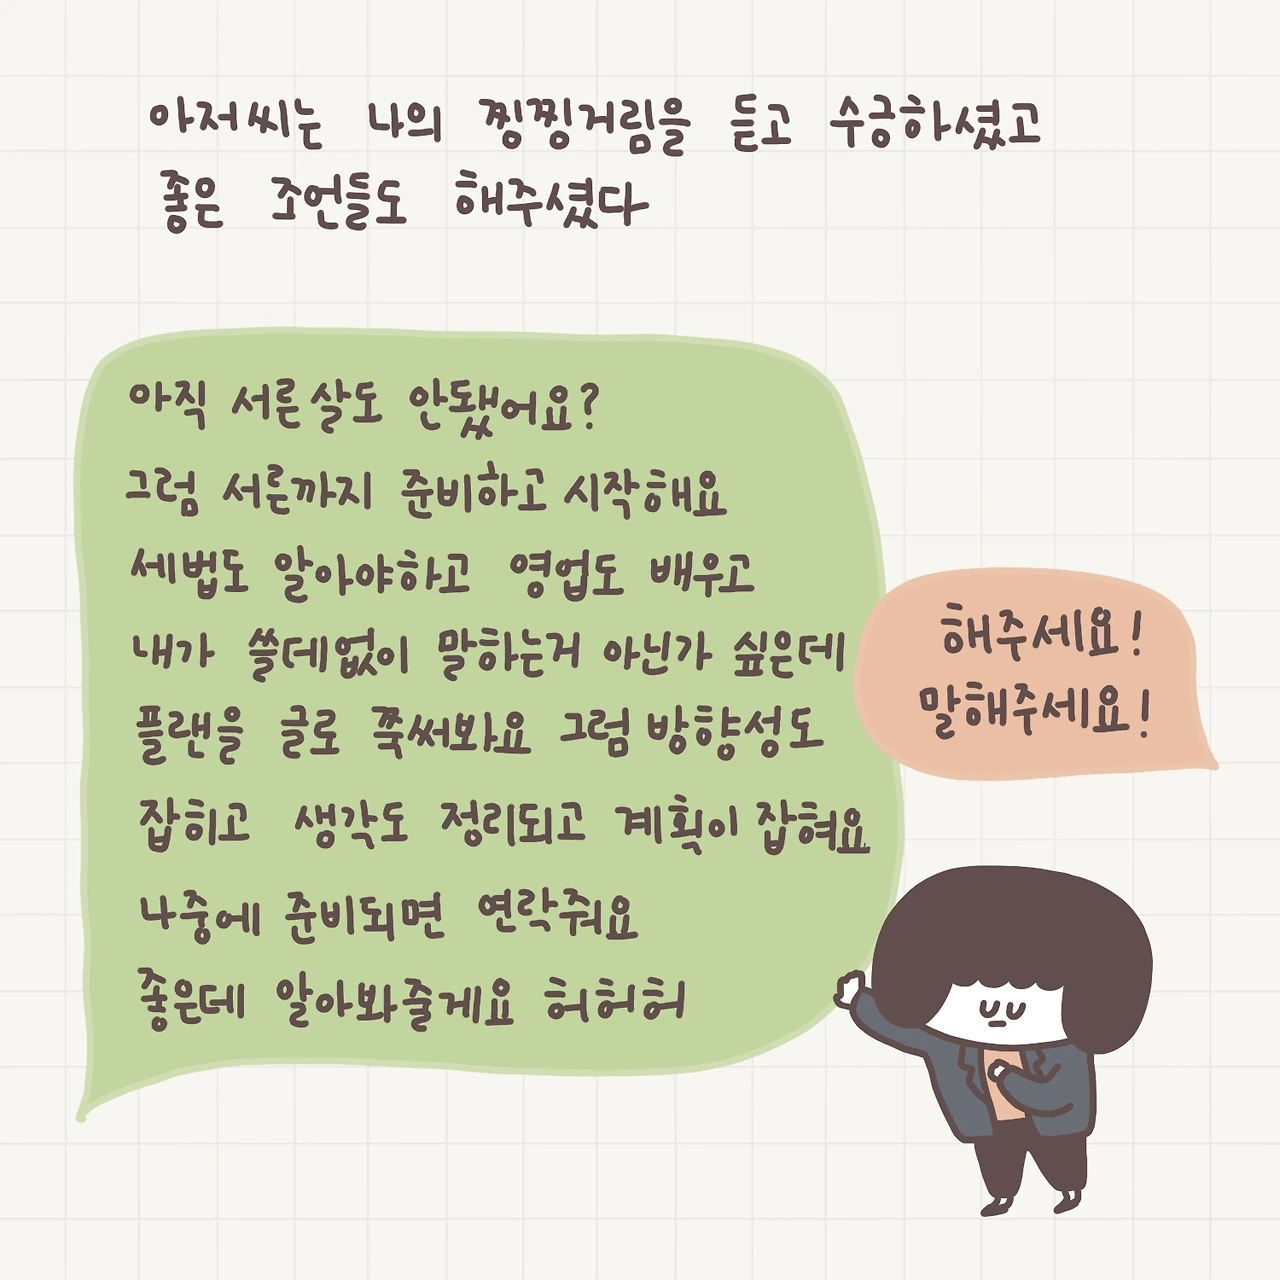 아저씨는 나의 찡찡거림을 듣고 수긍하셨고
좋은 조언들도 해주셨다
아직 서른살도 안됐어요?
그럼 서른까지 준비하고 시작해요
세법도 알아야하고 영업도 배우고
내가 쓸데없이 말하는거 아닌가 싶은데
해주세요!
말해주세요!
플랜을 글로 쭉써봐요 그럼 방향성도
잡히고 생각도 정리되고 계획이 잡혀요
나중에 준비되면 연락줘요
좋은데 알아봐줄게요 허허허